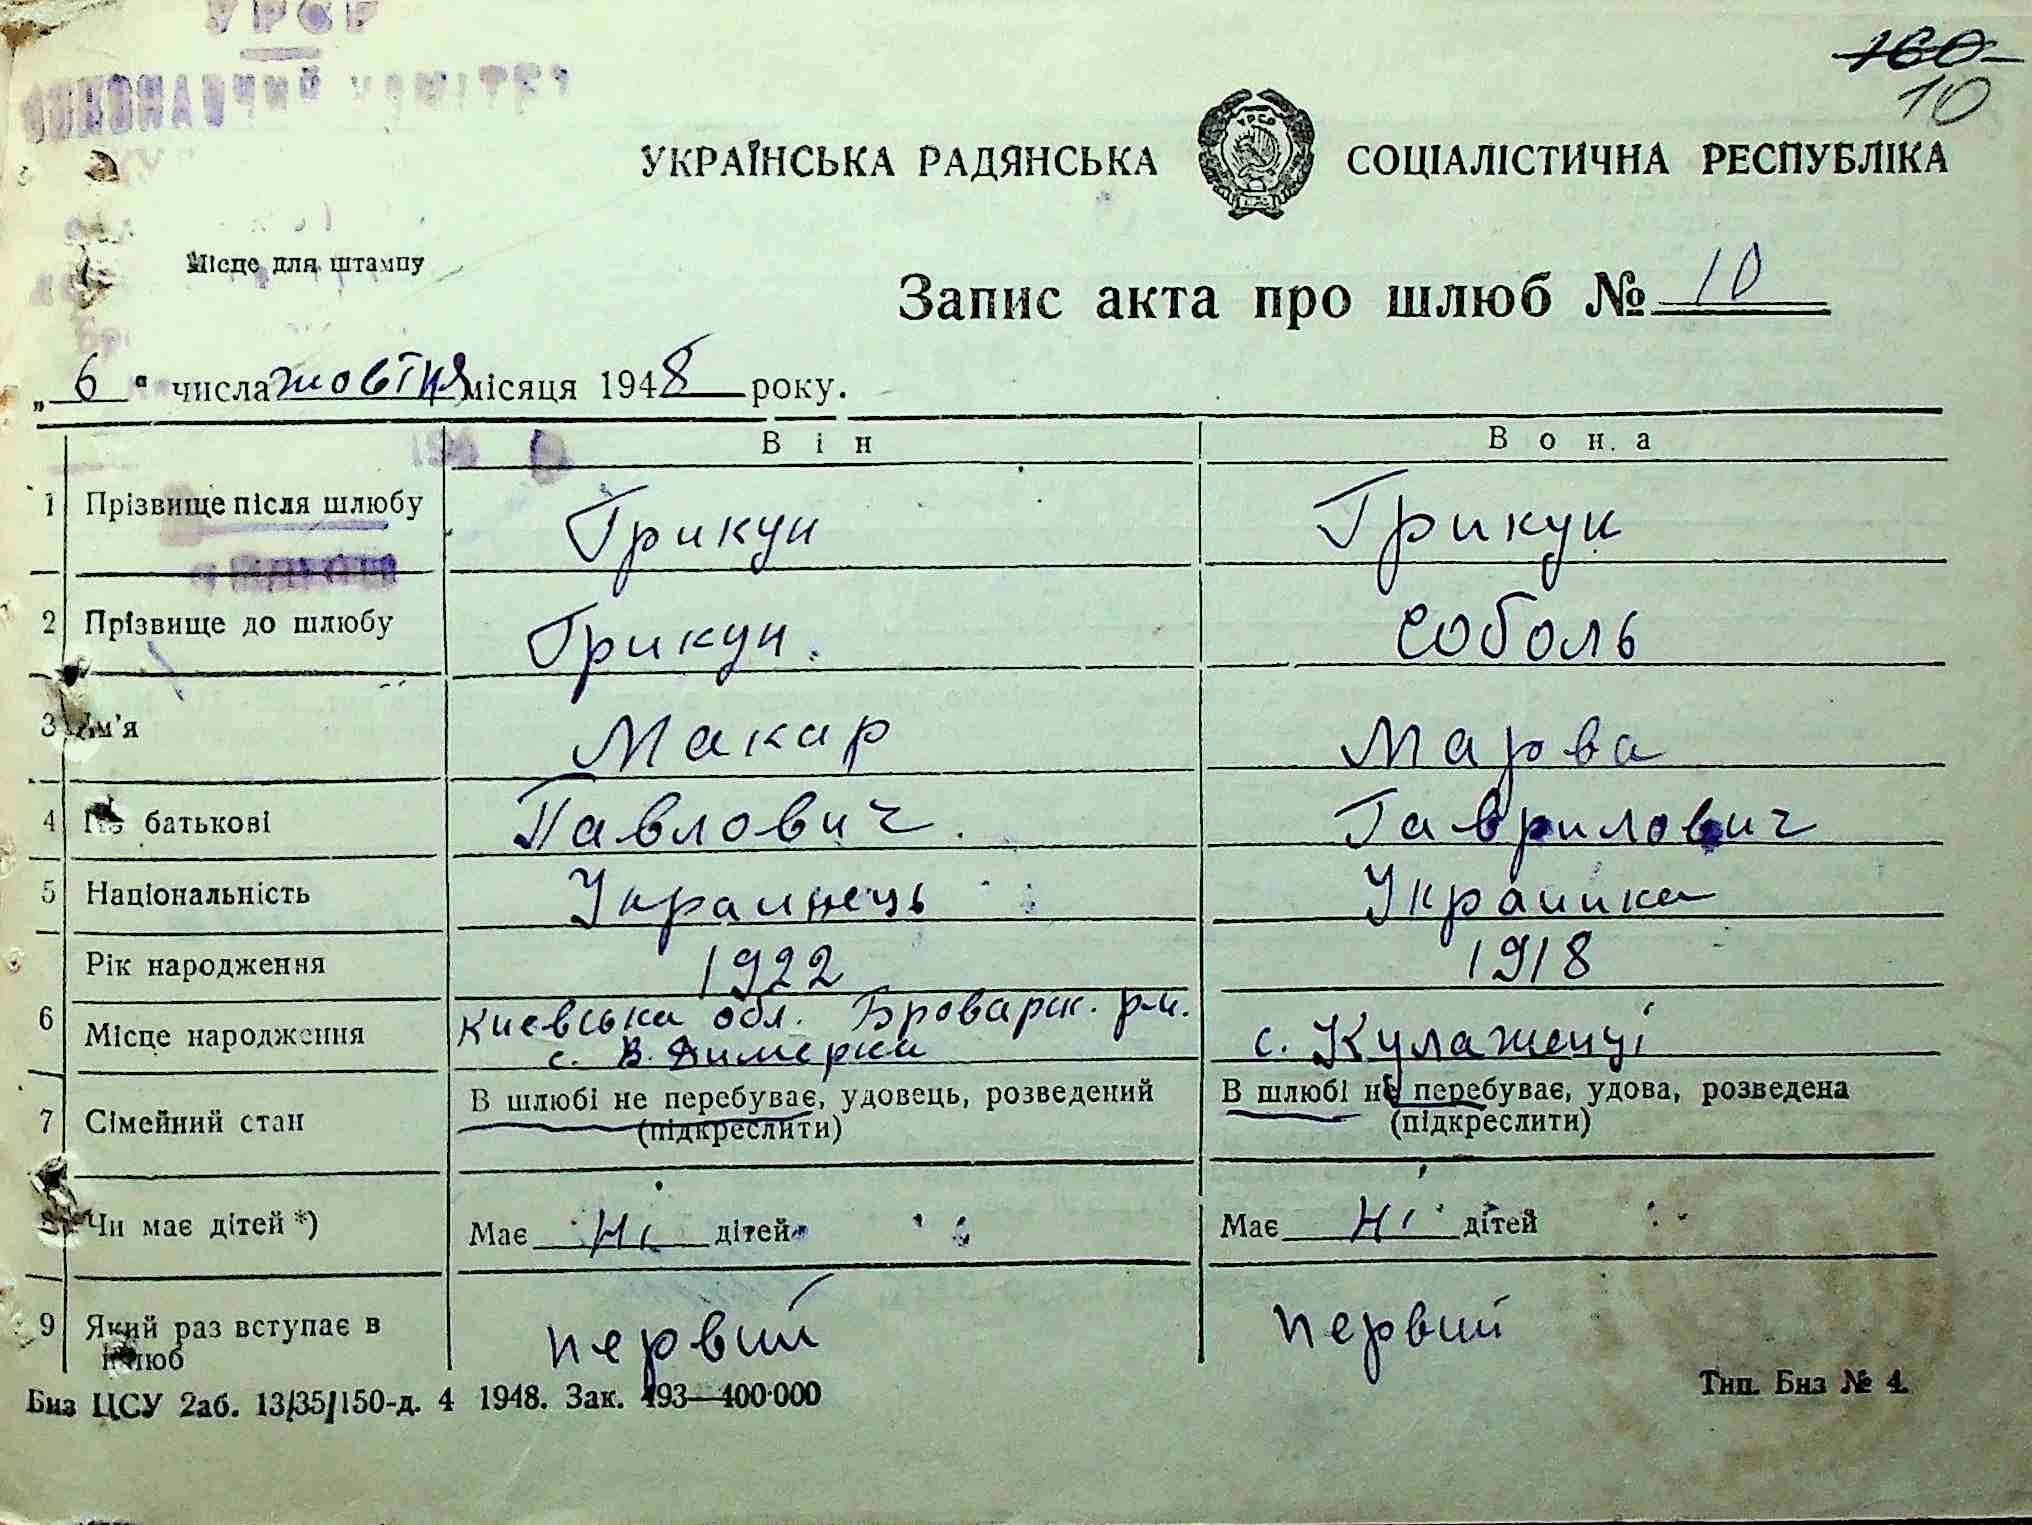 УРСР
ВИКОНАВЧИЙ КОМІТЕТ
160
10
УКРАЇНСЬКА РАДЯНСЬКА СОЦІАЛІСТИЧНА РЕСПУБЛІКА
Місце для штампу
Запис акта про шлюб № 10
„6“ числа жовтня місяця 1948 року.
Він Вона
1 Прізвище після шлюбу Грикун Грикун
2 Прізвище до шлюбу Грикун. Соболь
3 Ім'я Макар Марва
4 По батькові Павлович. Гаврилович
5 Національність Украинець Украинка
Рік народження 1922 1918
6 Місце народження Киевська обл. Броварск. р-н. с. В. Димерка с. Кулаженці
7 Сімейний стан В шлюбі не перебуває, удовець, розведений В шлюбі не перебуває, удова, розведена
(підкреслити) (підкреслити)
8 Чи має дітей *) Має ні дітей Має ні дітей
9 Який раз вступає в шлюб первий первий
Биз ЦСУ 2аб. 13/35/150-д. 4 1948. Зак. 493—400·000 Тип. Биз № 4.